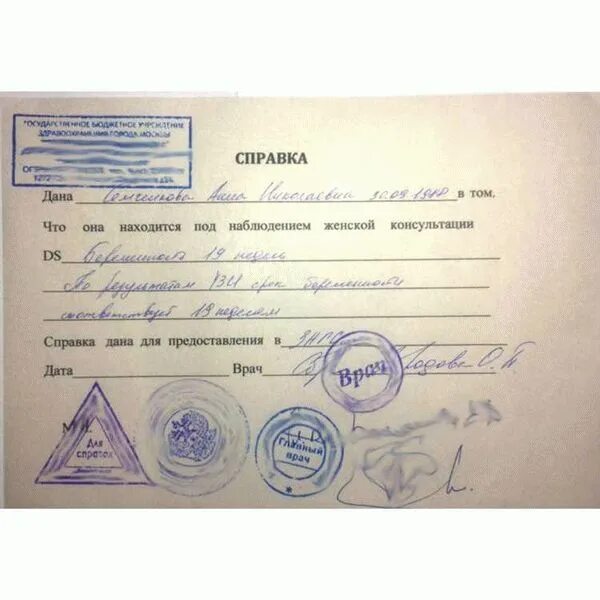 ГОСУДАРСТВЕННОЕ БЮДЖЕТНОЕ УЧРЕЖДЕНИЕ
ЗДРАВООХРАНЕНИЯ ГОРОДА МОСКВЫ
СПРАВКА
Дана Анна Николаевна в том,
Что она находится под наблюдением женской консультации
DS Беременность 19 недель
По результатам УЗИ срок беременности
соответствует 19 неделям
Справка дана для предоставления в ЗАГС
Дата Врач О. П
Врач
М.П.
Для
справок
Главный
врач